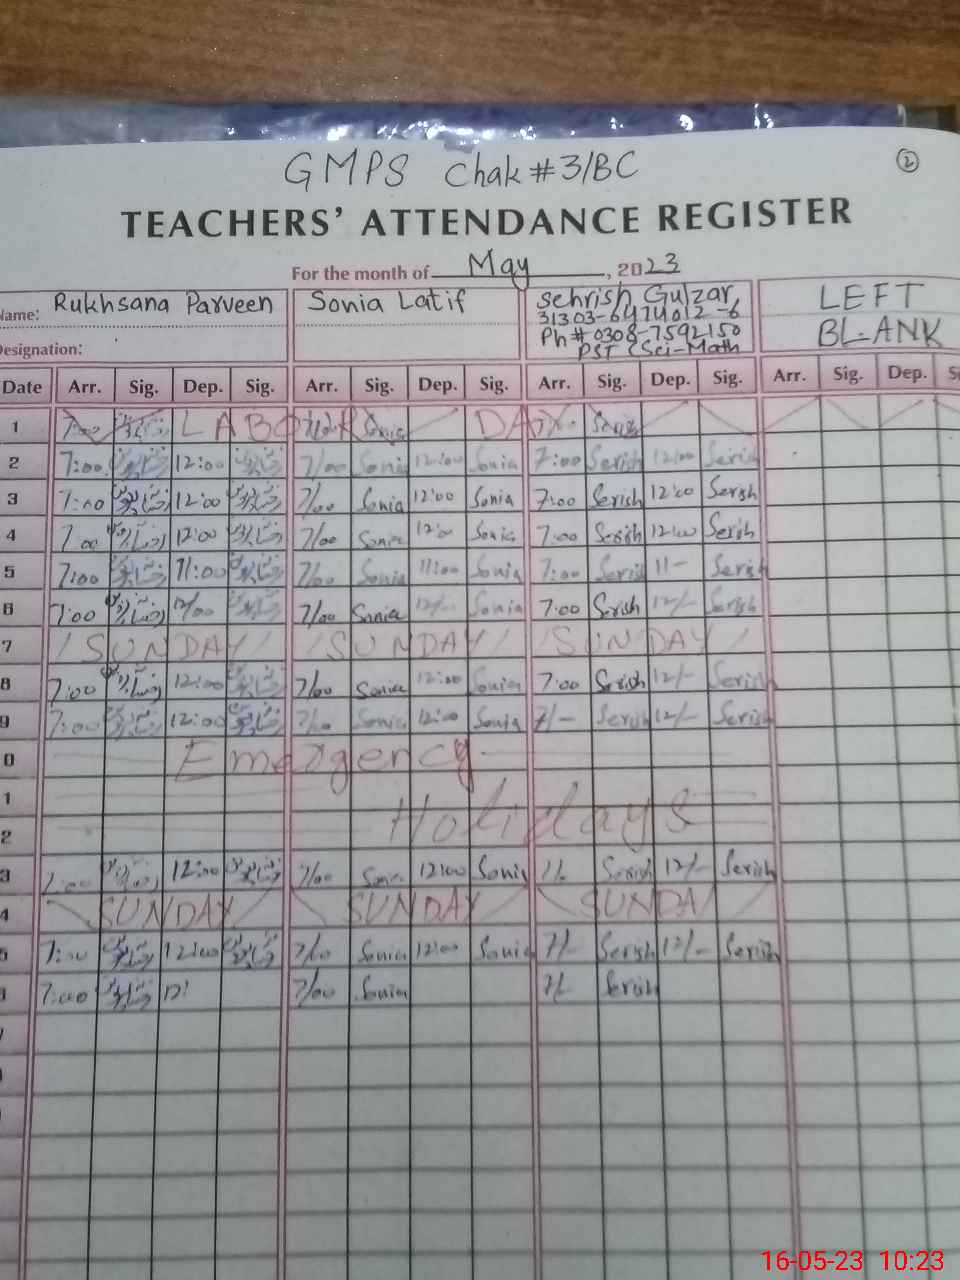 GMPS Chak # 3/BC
2
TEACHERS' ATTENDANCE REGISTER
For the month of May, 2023
Name: Rukhsana Parveen Sonia Latif Sehrish Gulzar, LEFT
31303-6474012-6
Ph # 0308-7592150 BLANK
Designation: PST (Sci-Math
Date Arr. Sig. Dep. Sig. Arr. Sig. Dep. Sig. Arr. Sig. Dep. Sig. Arr. Sig. Dep. Si
1 7:00 LABOUR Sonia DAY Serish
2 7:00 12:00 7/00 Sonia 12:00 Sonia 7:00 Serish 12:00 Serish
3 7:00 12:00 7/00 Sonia 12:00 Sonia 7:00 Serish 12:00 Serish
4 7:00 12:00 7/00 Sonia 12:00 Sonia 7:00 Serish 12:00 Serish
5 7:00 11:00 7/00 Sonia 11:00 Sonia 7:00 Serish 11- Serish
6 7:00 12/00 7/00 Sonia 12/- Sonia 7:00 Serish 12/- Serish
7 SUNDAY SUNDAY SUNDAY
8 7:00 12:00 7/00 Sonia 12:00 Sonia 7:00 Serish 12/- Serish
9 7:00 12:00 7/00 Sonia 12:00 Sonia 7/- Serish 12/- Serish
0 Emergency
1
2 Holidays
3 7:00 12:00 7/00 Sonia 12:00 Sonia 7/- Serish 12/- Serish
4 SUNDAY SUNDAY SUNDAY
5 7:00 12:00 7/00 Sonia 12:00 Sonia 7/- Serish 12/- Serish
7:00 12: 7/00 Sonia 7/- Serish
16-05-23 10:23